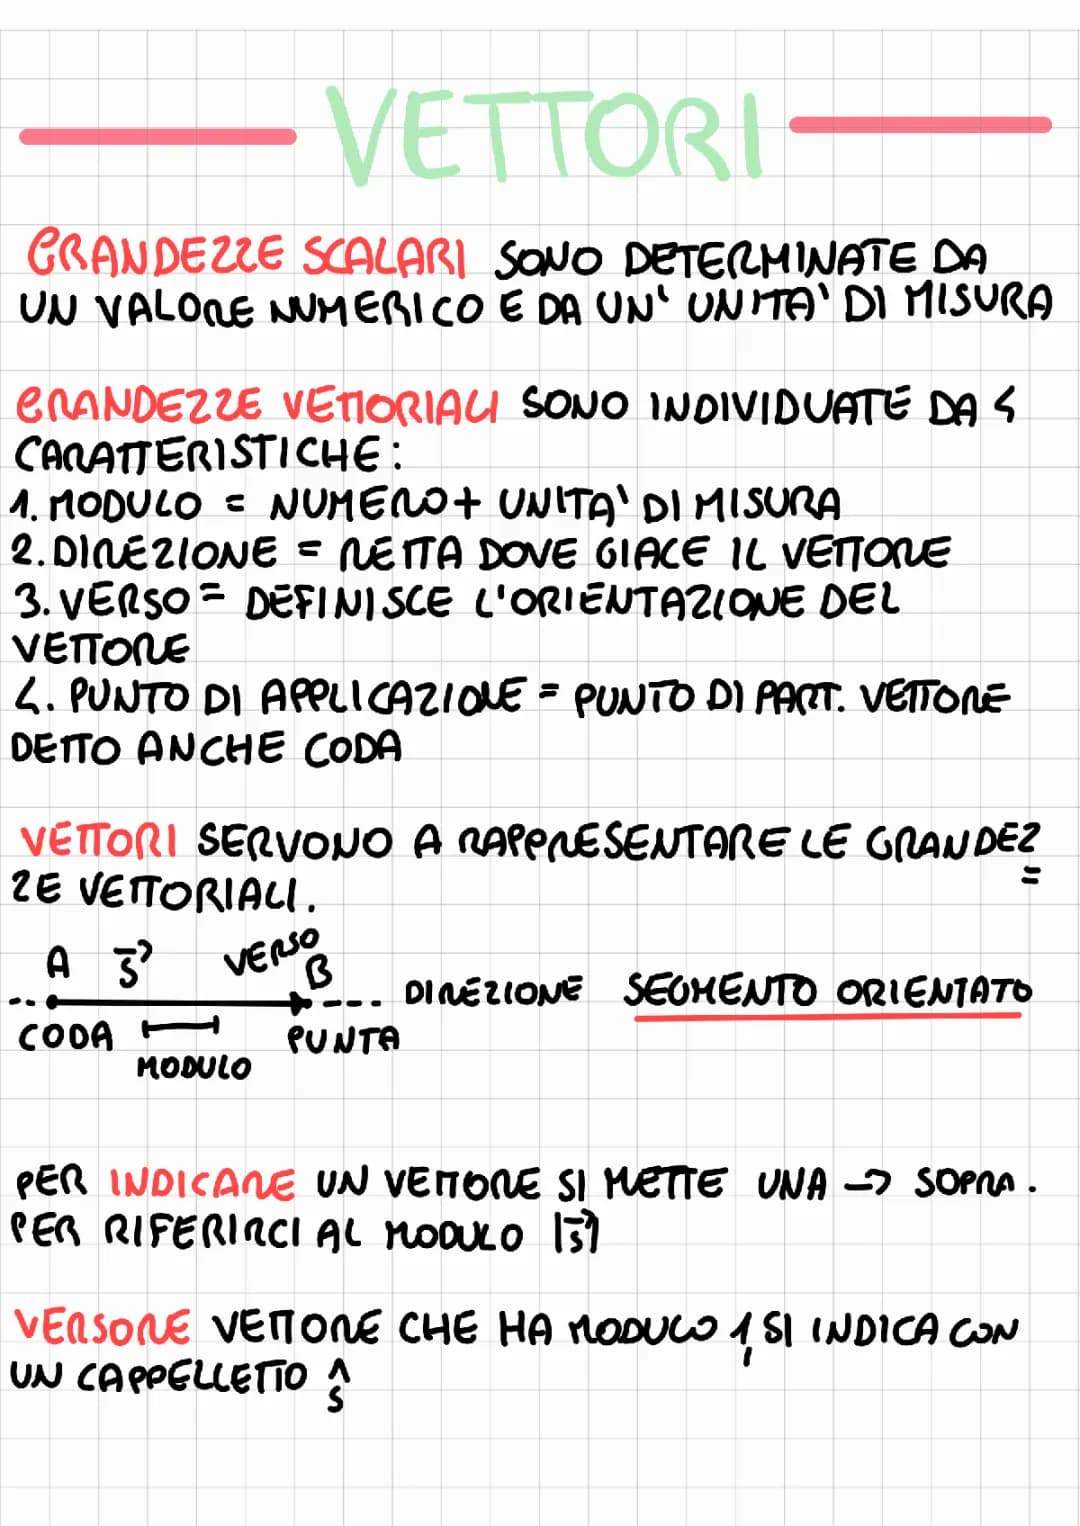 VETTORI
GRANDEZZE SCALARI SONO DETERMINATE DA
UN VALORE NUMERICO E DA UN' UNITA' DI MISURA
GRANDEZZE VETTORIALI SONO INDIVIDUATE DA 4
CARATTERISTICHE:
1. MODULO = NUMERO + UNITA' DI MISURA
2. DIREZIONE = RETTA DOVE GIACE IL VETTORE
3. VERSO = DEFINISCE L'ORIENTAZIONE DEL
VETTORE
4. PUNTO DI APPLICAZIONE = PUNTO DI PART. VETTORE
DETTO ANCHE CODA
VETTORI SERVONO A RAPPRESENTARE LE GRANDEZ=
ZE VETTORIALI.
A s⃗ VERSO B
DIREZIONE SEGMENTO ORIENTATO
CODA PUNTA
MODULO
PER INDICARE UN VETTORE SI METTE UNA → SOPRA.
PER RIFERIRCI AL MODULO |s⃗|
VERSORE VETTORE CHE HA MODULO 1, SI INDICA CON
UN CAPPELLETTO ŝ